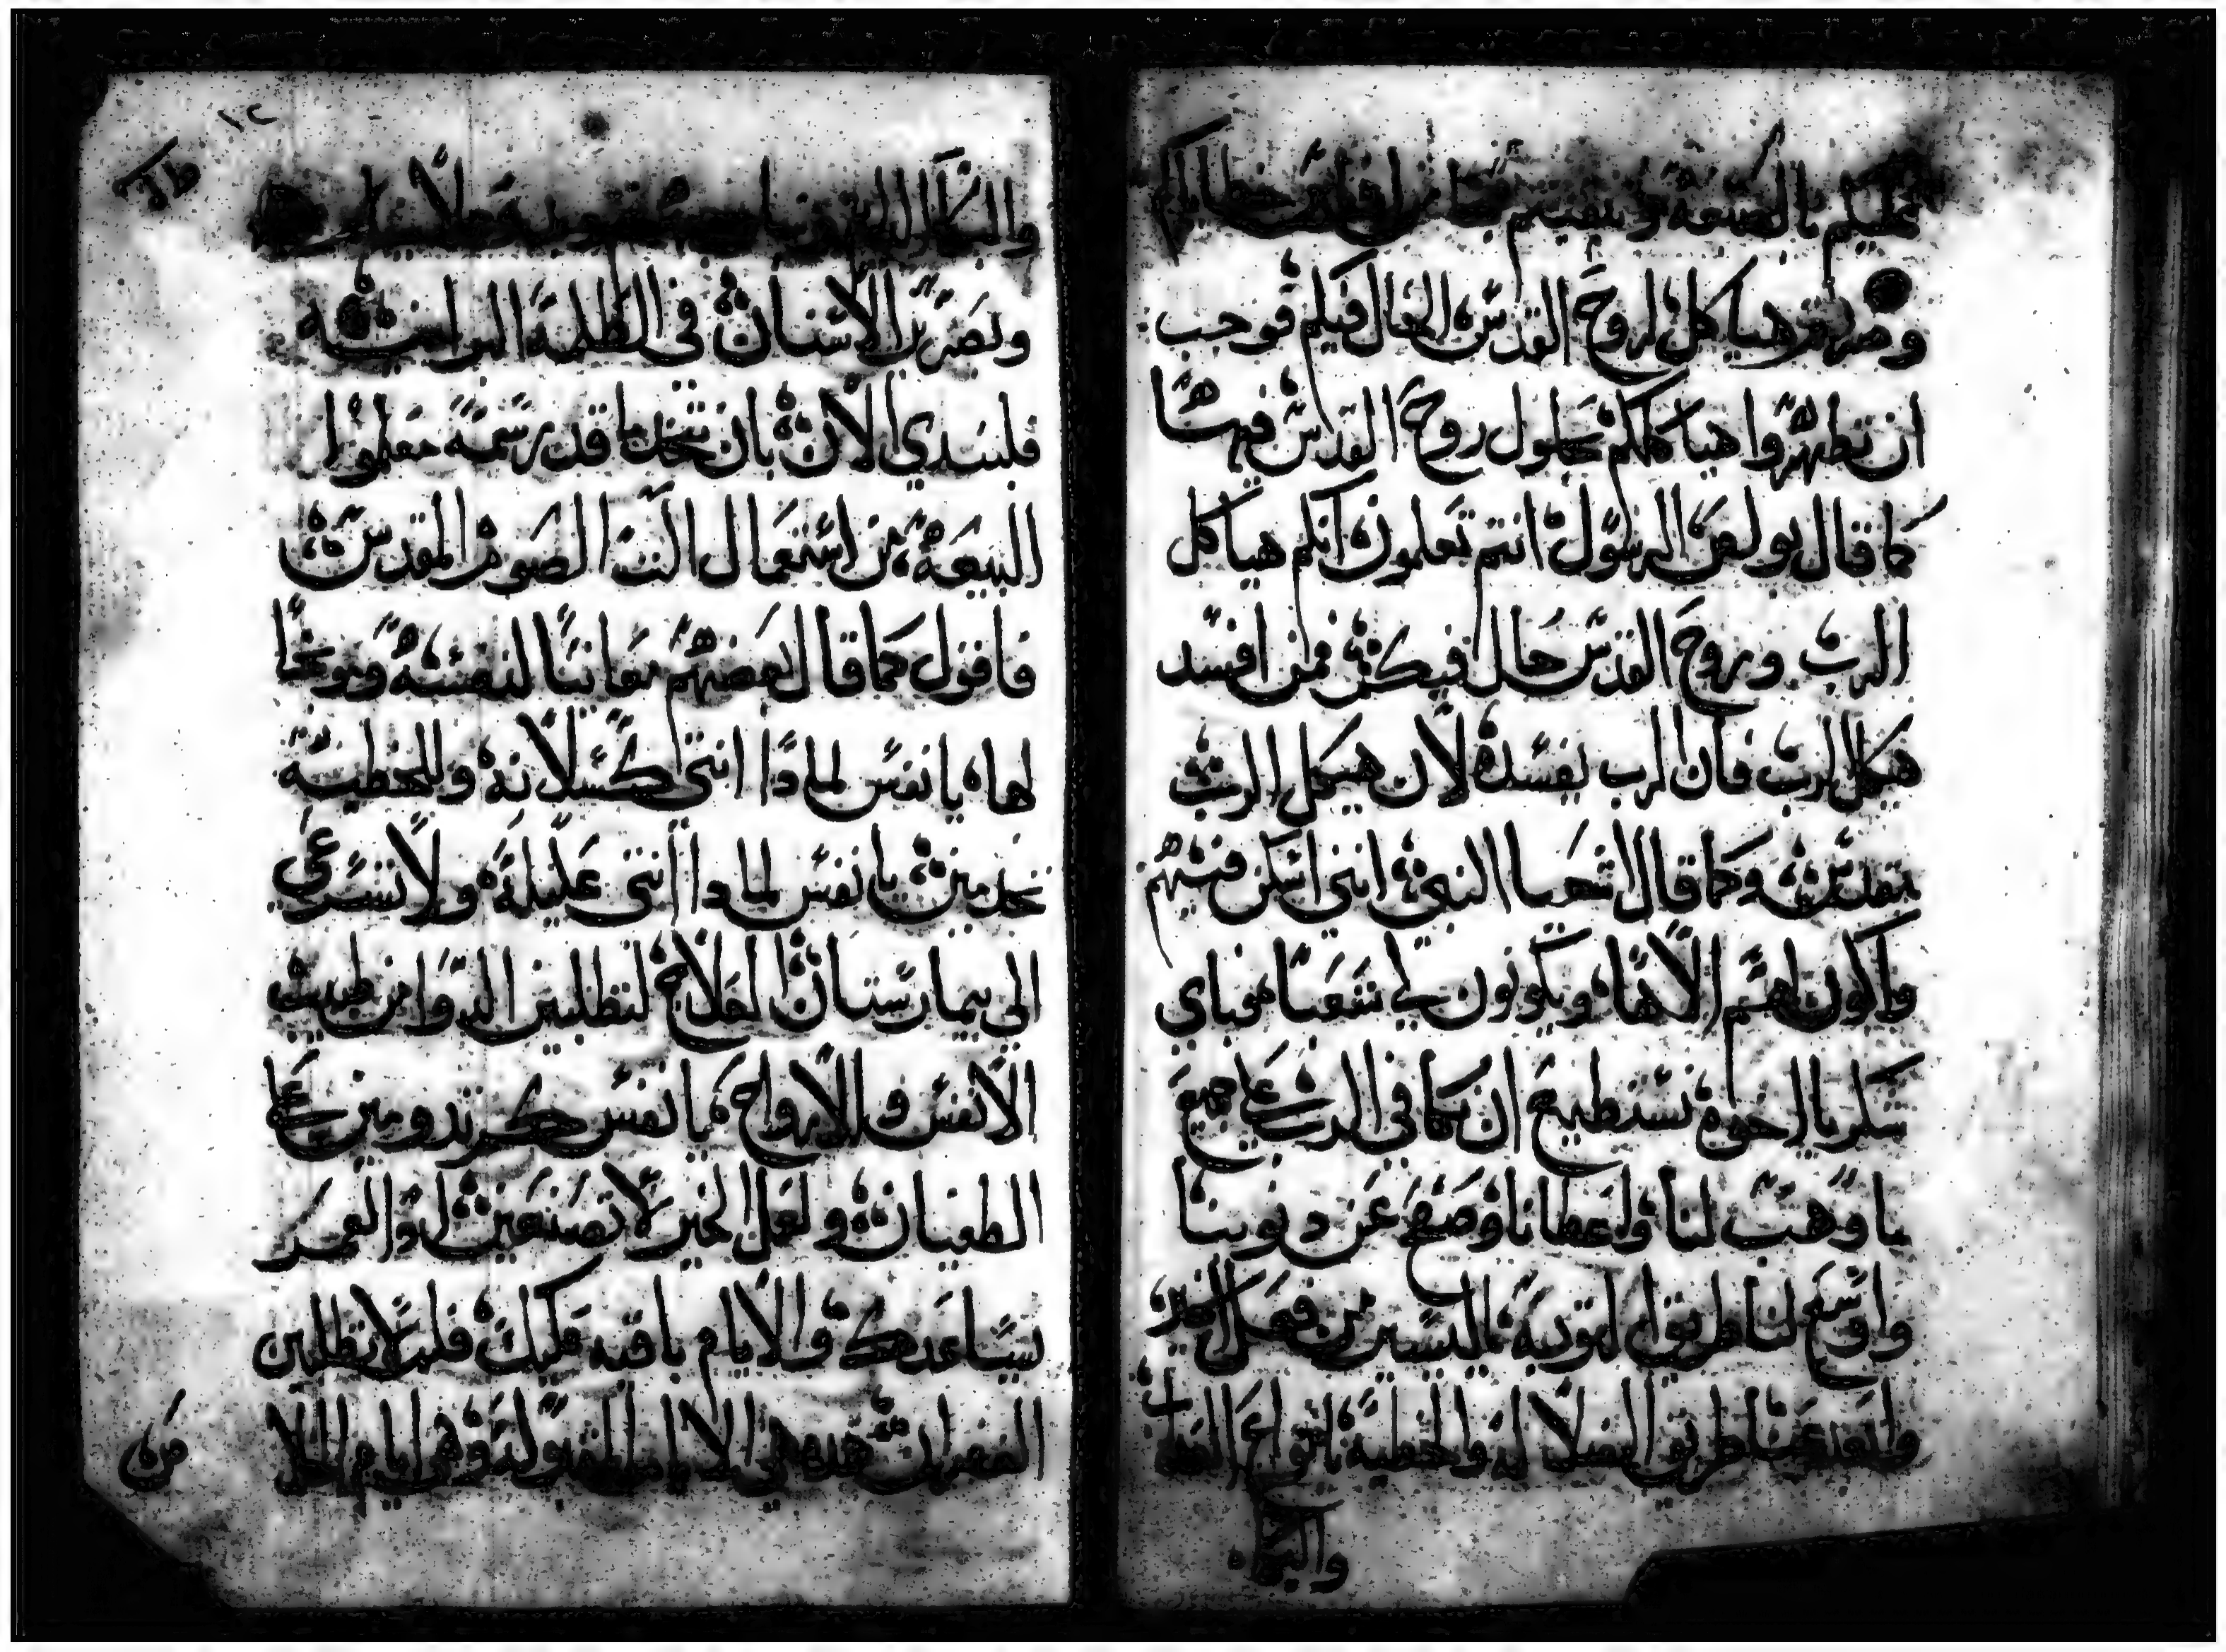 عليكم بالصبغه وبنعمتها من خطاياكم
وصرتم هياكل لروح القدس الحال فيكم فوجب
ان تطهروا هياكلكم بحلول روح القدس فيها
كما قال بولص الرسول انتم تعلمون انكم هياكل
الرب وروح القدس حال فيكم فمن افسد
هيكل الرب فان الرب يفسده لان هيكل الرب
مقدس وكما قال اشعيا النبي انني اسكن فيهم
واكون لهم الاها ويكونون لي شعبا فباي
شكر يا اخوه نستطيع ان نكافي الرب على جميع
ما وهب لنا واعطانا وصفح عن دنوبنا
واوسع لنا طريق التوبه باليسير من فعل الخير
وابعد عنا طريق الضلاله والخطيه بانواع
والبكاء
١٢
والبكاء
وتصرير الاسنان في الظلمه البرانيه
فلنبتدي الان بان نتخد ما قد رسمه معلموا
البيعه من استعمال الصوم المقدس
فاقول كما قال بعضهم معاتبا لنفسه وموبخا
لها يا نفس لمادا انتي كسلانه وللخطيه
تخدمين يا نفس لمادا انتي عليله ولا تسرعي
الي بيمارستان العلاج لتطلبين الدوا من طبيب
الانفس والارواح يا نفس كم تدومين على
الطغيان ولعمل الخير لا تصنعين لو العمر
يساعدك والايام باقيه عليك فلم لا تطلبين
الغفران هده هي الايام المقبوله وهي ايام الخلا
من